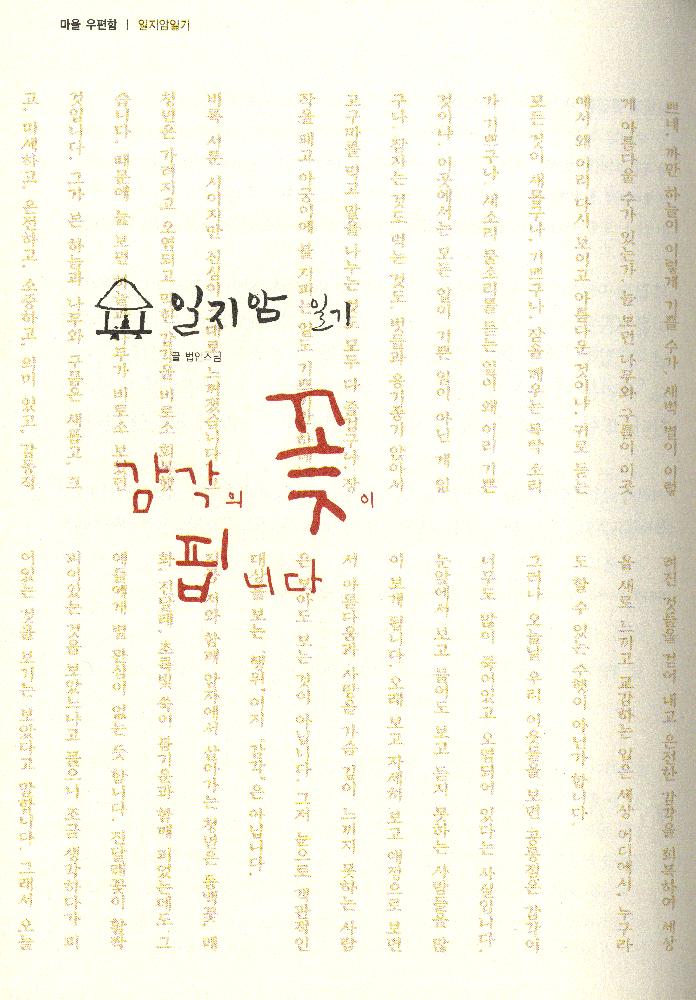 마을 우편함 | 일지암일기
일지암 일기
글 법인스님
감각의 꽃이
핍니다
쁘네. 까만 하늘이 이렇게 기쁠 수가 새벽 별이 이렇
게 아름다울 수가 있는가. 늘 보던 나무와 구름이 이곳
에서 왜 이리 다시 보이고 아름다운 것이냐 귀로 듣는
모든 것이 새롭구나. 기쁘구나. 잠을 깨우는 목탁 소리
가 기쁘구나. 새소리 물소리를 듣는 일이 왜 이리 기쁜
것이냐. 이곳에서는 모든 일이 기쁜 일이 아닌 게 없
구나. 잠자는 것도 먹는 것도 벗들과 옹기종기 앉아서
고구마를 먹고 말을 나누는 것도 모두 다 즐겁구나 장
작을 패고 아궁이에 불 지피는 일도
비록 서툰 시이지만 진심이 그대로 느껴졌습니다. 그
청년은 가려지고 오염되고 막힌 감각을 비로소 회복했
습니다. 때문에 늘 보던 하늘과 나무가 비로소 보였던
것입니다. 그가 본 하늘과 나무와 구름은 새롭고, 크
고, 미세하고, 온전하고, 소중하고, 의미 있고, 감동적
려진 것들을 걷어 내고 온전한 감각을 회복하여 세상
을 새로 느끼고 교감하는 일은 세상 어디에서, 누구라
도 할 수 있는 수행이 아닌가 합니다.
그러나 오늘날 우리 이웃들을 보면 공통점은 감각이
너무도 많이 죽어있고 오염되어 있다는 사실입니다.
눈앞에서 보고 들어도 보고 듣지 못하는 사람들을 많
이 보게 됩니다. 오래 보고 자세히 보고 애정으로 보면
서 아름다움과 사랑을 가슴 깊이 느끼지 못하는 사람
은 보아도 보는 것이 아닙니다. 그저 눈으로 객관적인
대상을 보는 '행위'이지 '감각'은 아닙니다.
함께 암자에서 살아가는 청년은 동백꽃, 매
화, 진달래, 초록빛 쑥이 봄기운과 함께 피었는데도 그
애들에게 별 관심이 없는 듯 합니다. 진달래꽃이 활짝
피어있는 것을 보았느냐고 물으니 조금 생각하다가 피
어있는 것을 보기는 보았다고 말합니다. 그래서 오늘